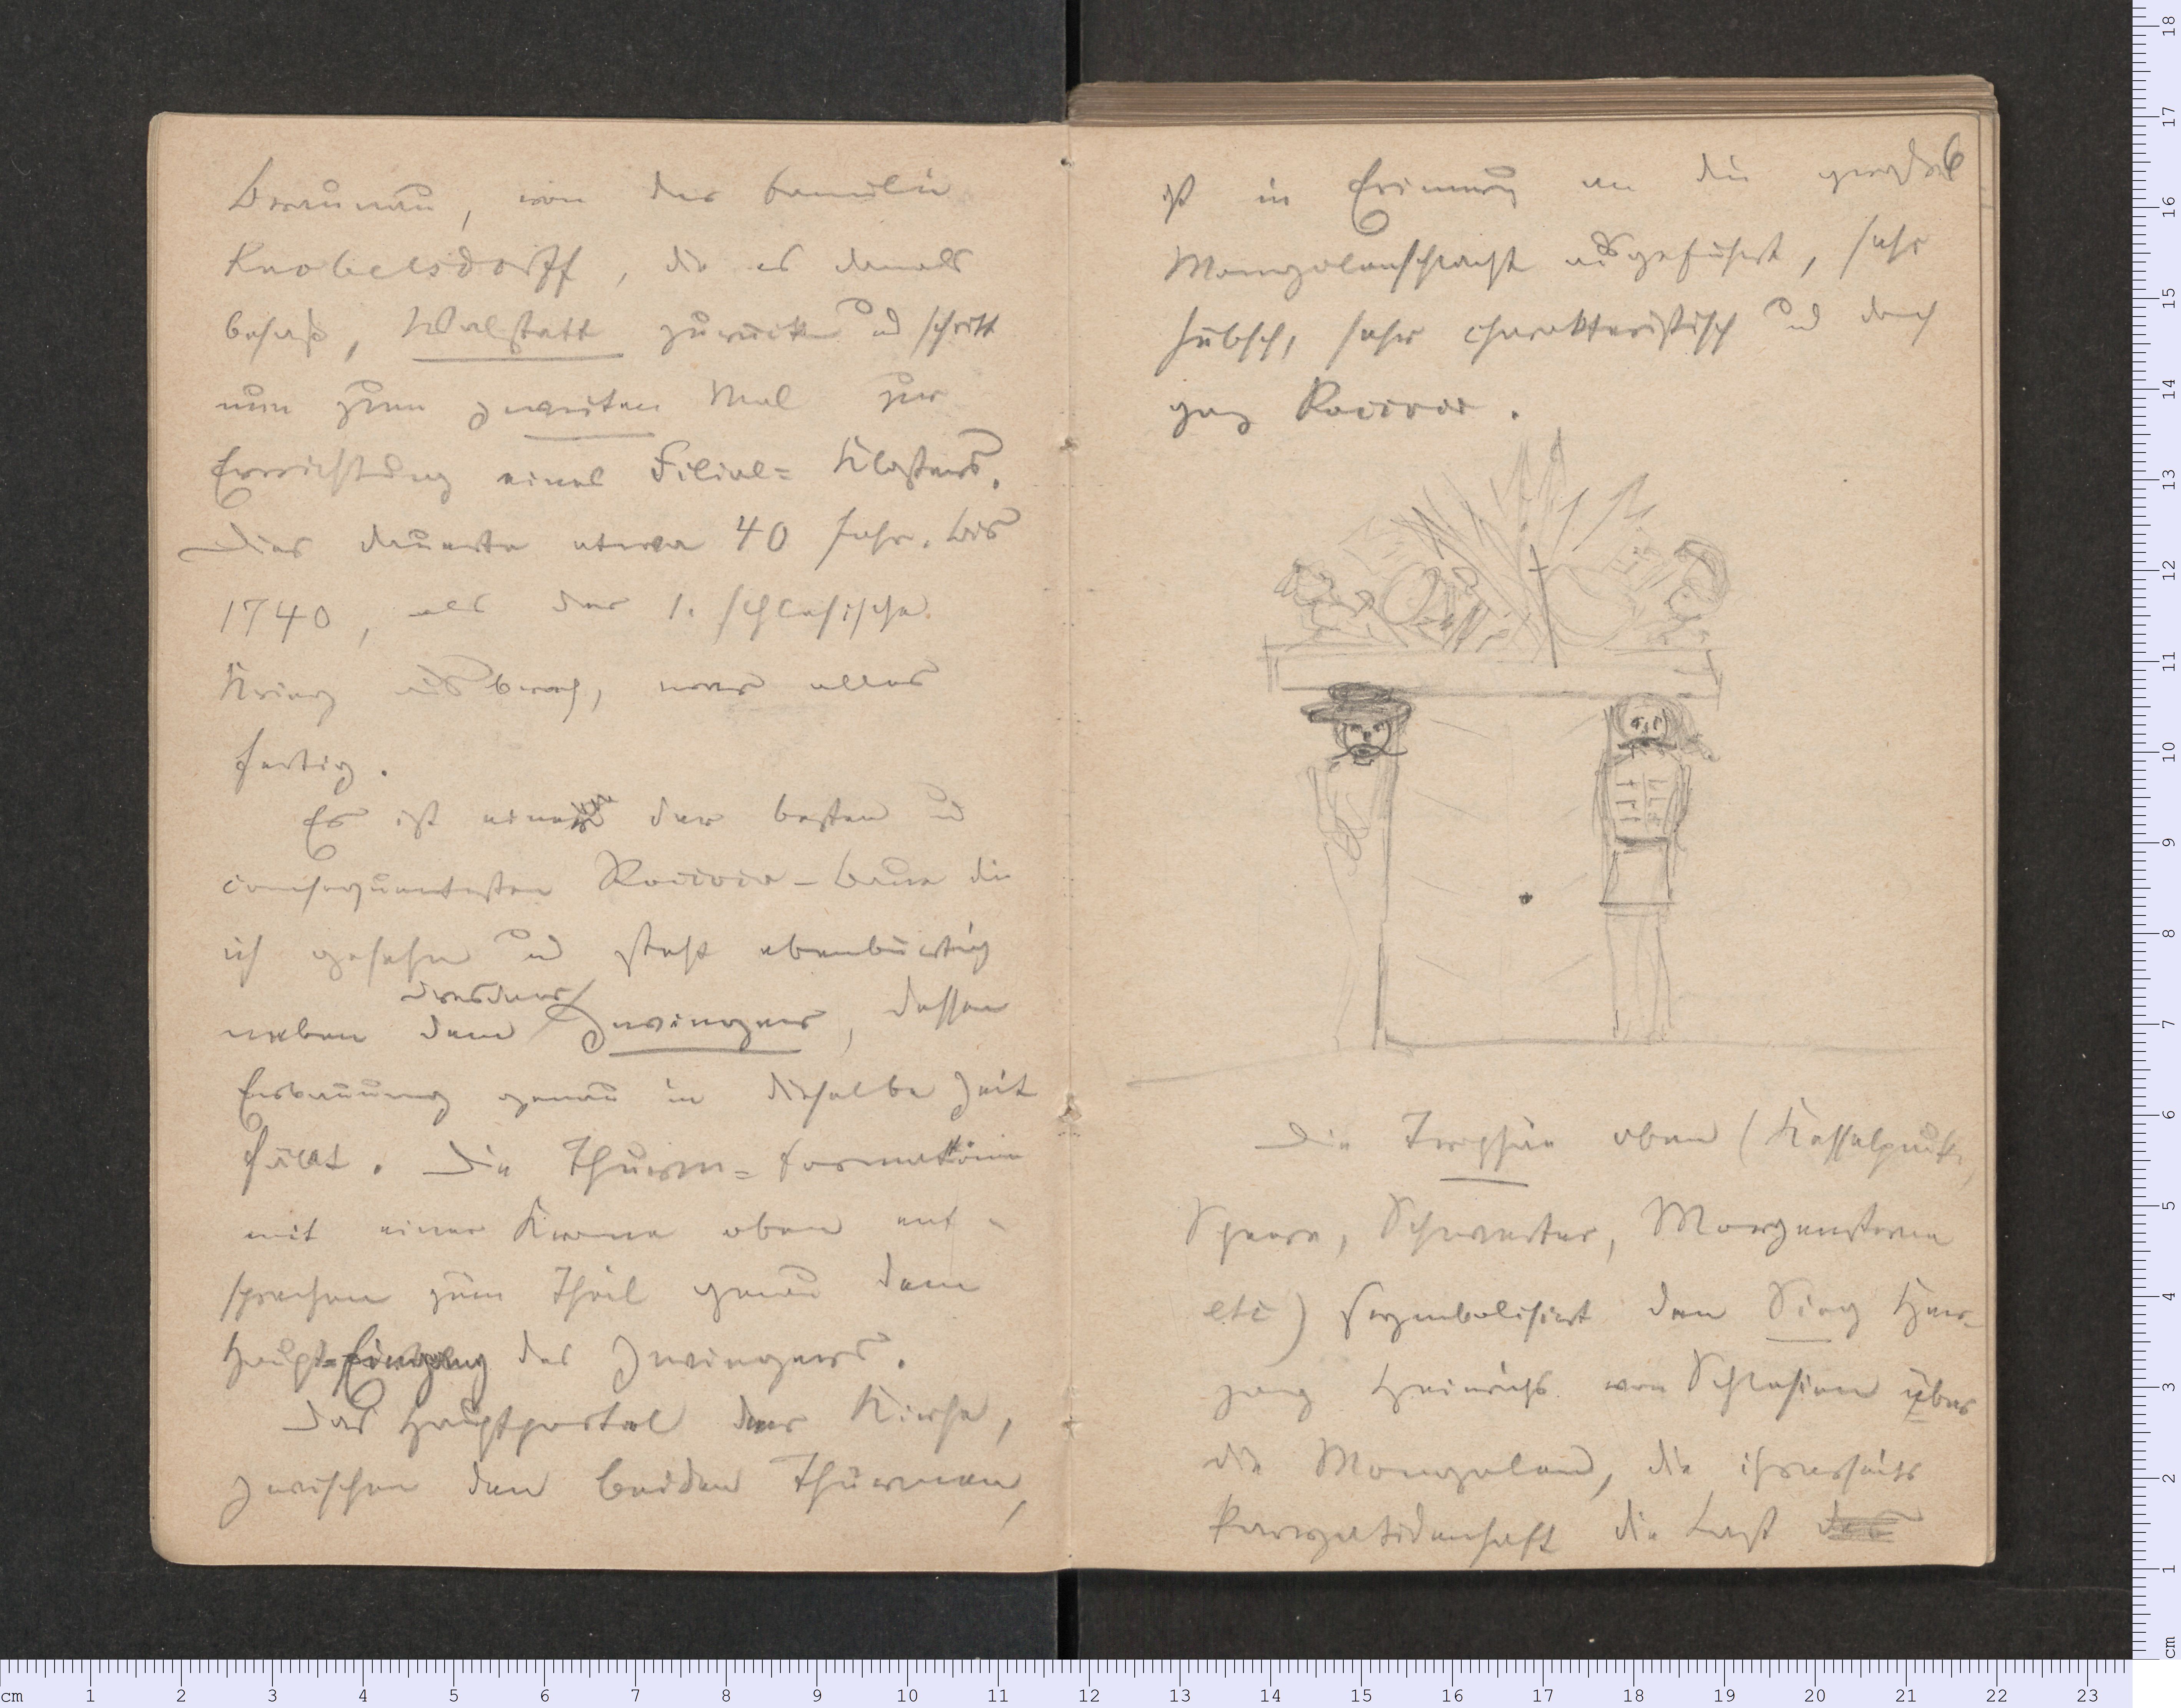 Braunau, von der Familie
Knobelsdorff, die es damals
besaß, Walstatt zurück und schritt
nun zum zweiten Mal zur
Errichtung eines Filial-Klosters.
Dies dauerte etwa 40 Jahr. Bis
1740, als der 1. schlesische
Krieg ausbrach, war alles
fertig.
Es ist einer der besten und
consequentesten Rococo-Baue die
ich gesehn und steht ebenbürtig
Dresdner
neben dem Zwinger, dessen
Erbauung genau in dieselbe Zeit
fällt. Die Thurm-formationen
mit einer Krone oben ent-
sprechen zum Theil genau dem
Haupt-Eingang des Zwingers.
Das Hauptportal der Kirche,
zwischen den beiden Thürmen,
6
ist in Erinnrung an die
Mongolenschlacht ausgeführt, sehr
hübsch, sehr charakteristisch und doch
ganz Rococo.
Die Trophäe oben (Kesselpauke,
Speere, Schwerter, Morgensterne
etc) symbolisirt den Sieg Her-
zog Heinrichs von Schlesien über
die Mongolen, die ihrerseits
karyatidenhaft die Last der